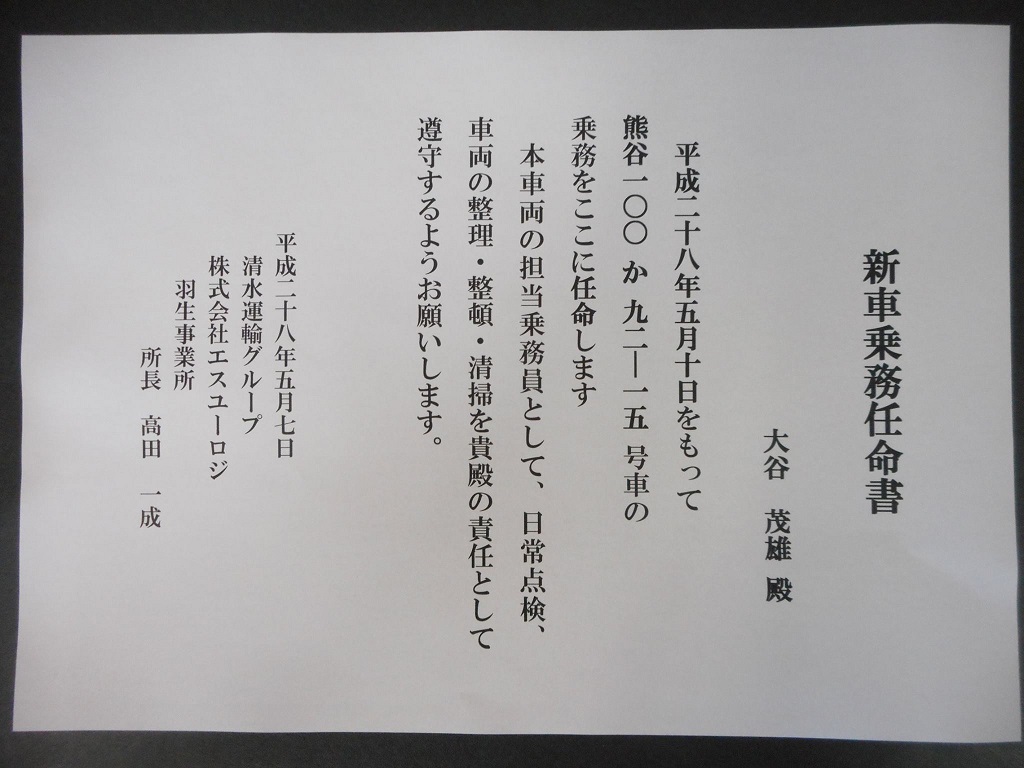 新車乗務任命書
大谷　茂雄 殿
平成二十八年五月十日をもって
熊谷一〇〇 か 九二―一五 号車の
乗務をここに任命します
本車両の担当乗務員として、日常点検、
車両の整理・整頓・清掃を貴殿の責任として
遵守するようお願いします。
平成二十八年五月七日
清水運輸グループ
株式会社エスユーロジ
羽生事業所
所長　高田　一成